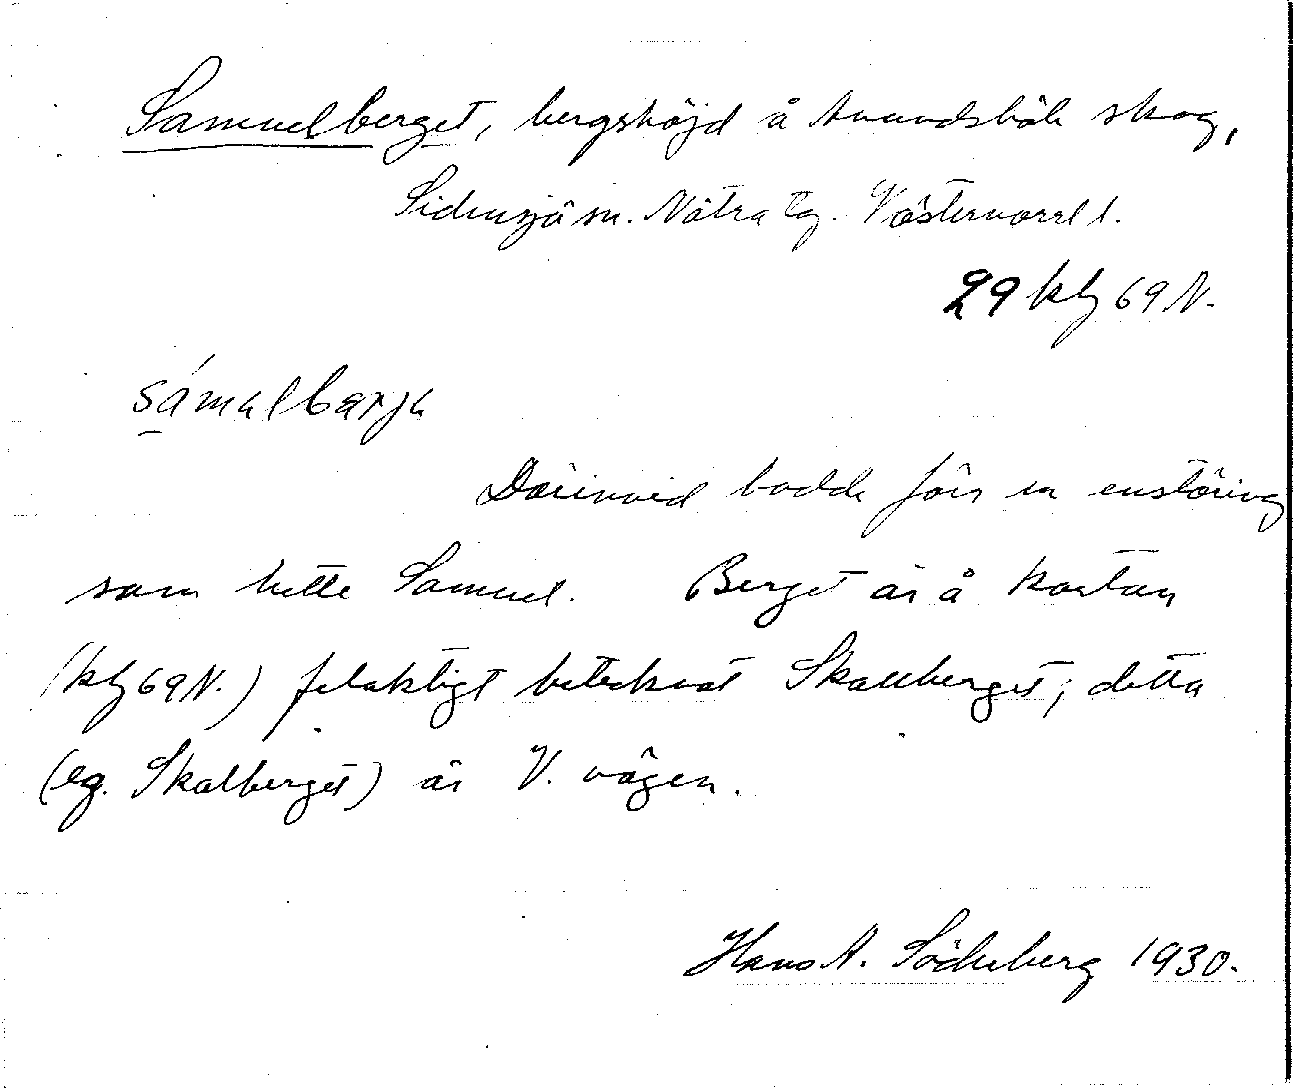 Samuelberget, bergshöjd å Anundsböle skog,
Sidensjö sn. Nätra tg. Västernorrl l.
29 kbj 69 N.
sámalbærja
Därinvid bodde förr en enstöring
som hette Samuel. Berget är å kartan
(kbj 69 N.) felaktigt betecknat Skallberget; detta
(eg. Skalberget) är V. vägen.
Hans A. Söderberg 1930.